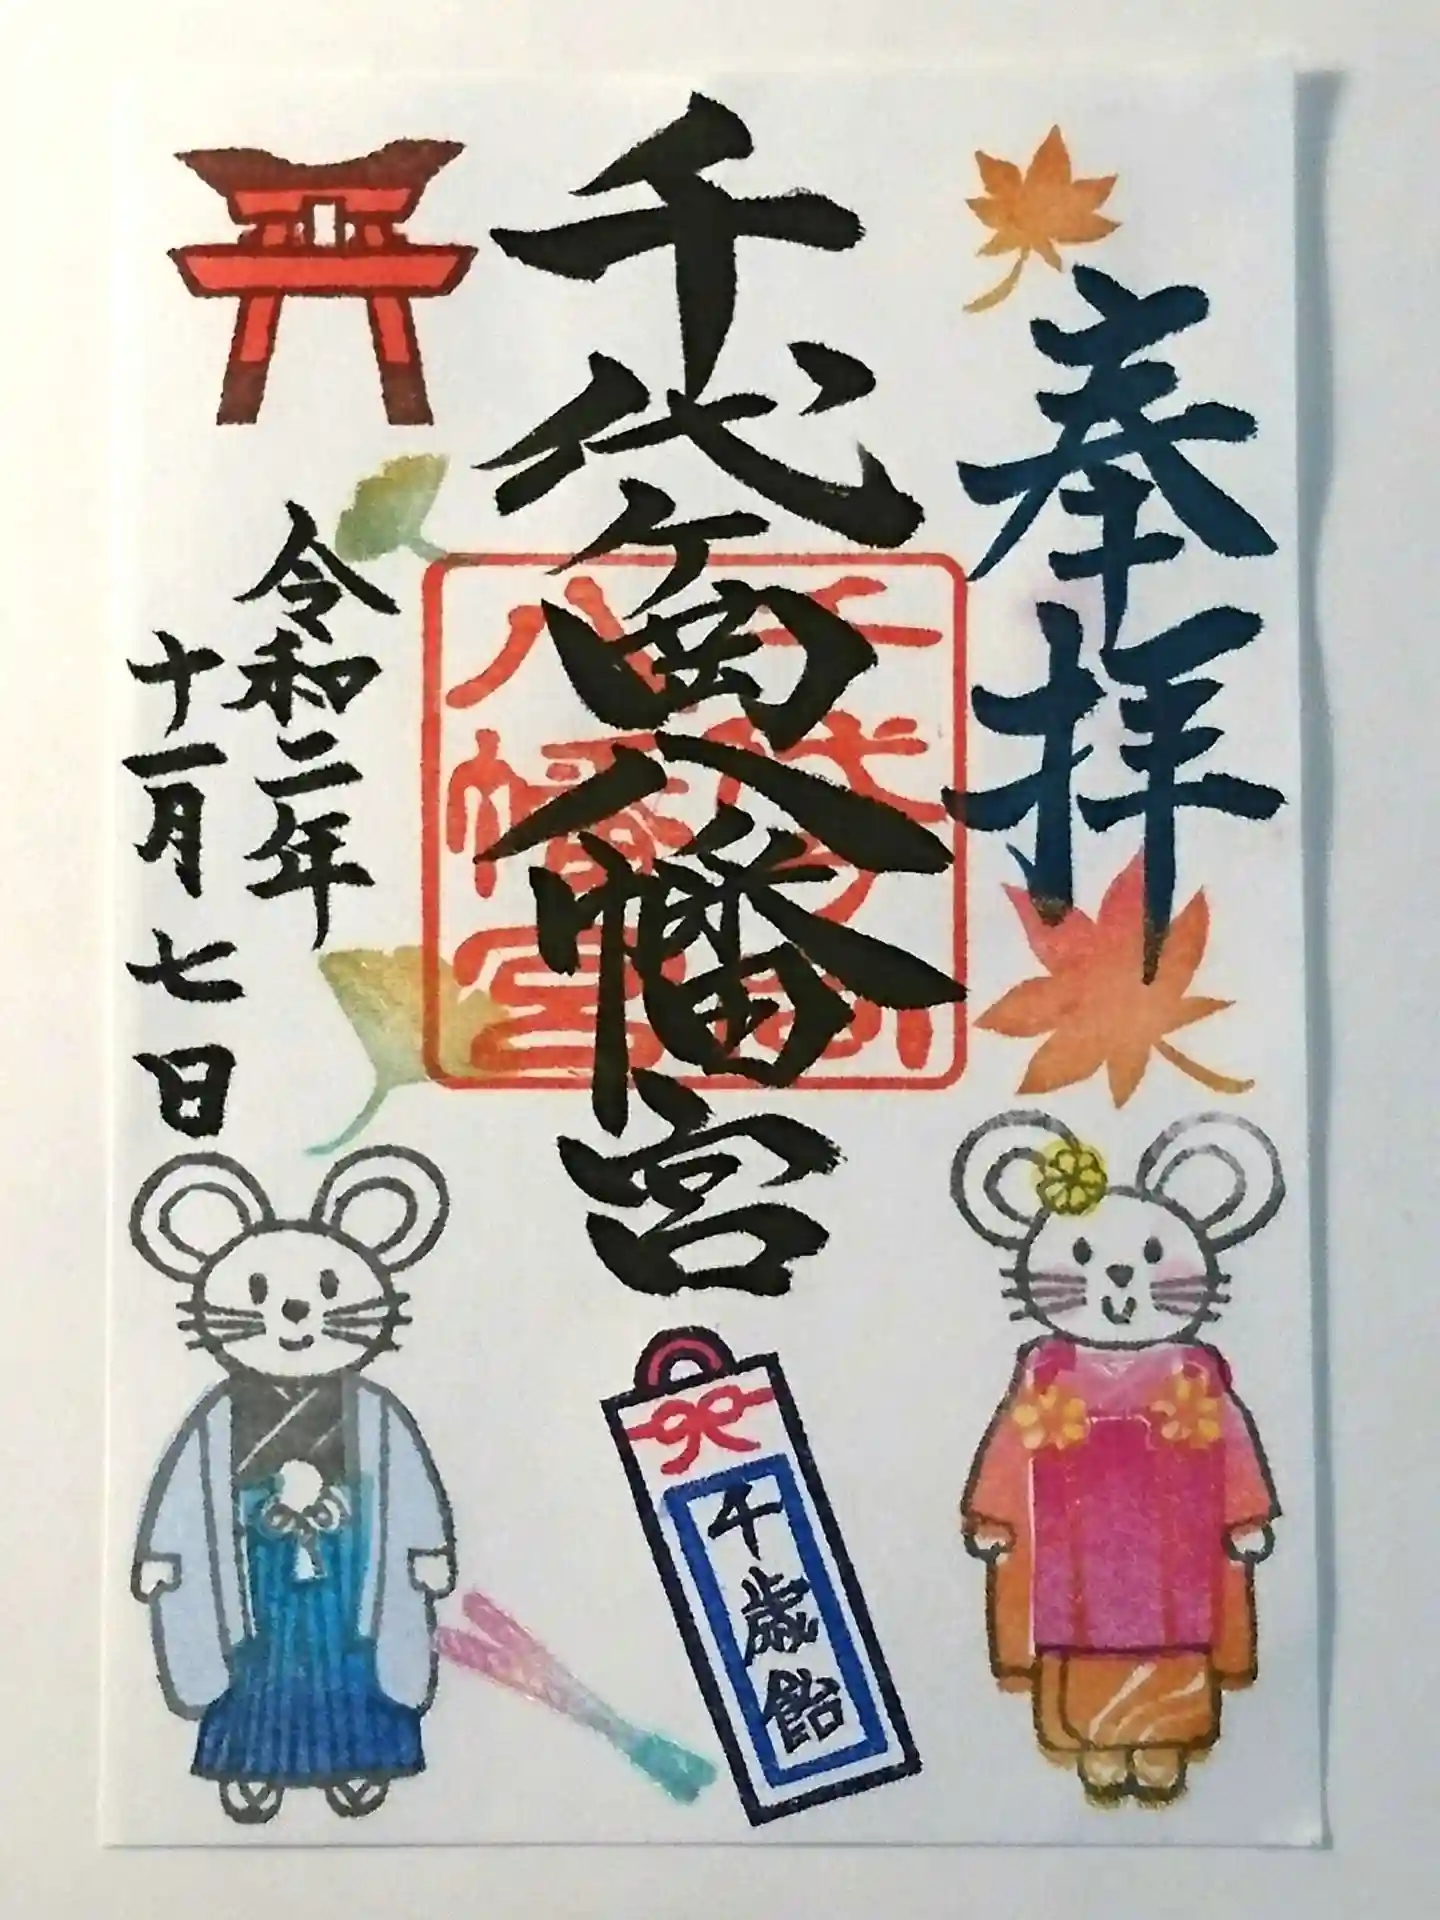 奉拝
千代ヶ岡八幡宮
千代ヶ岡
八幡宮
令和二年
十一月七日
千歳飴